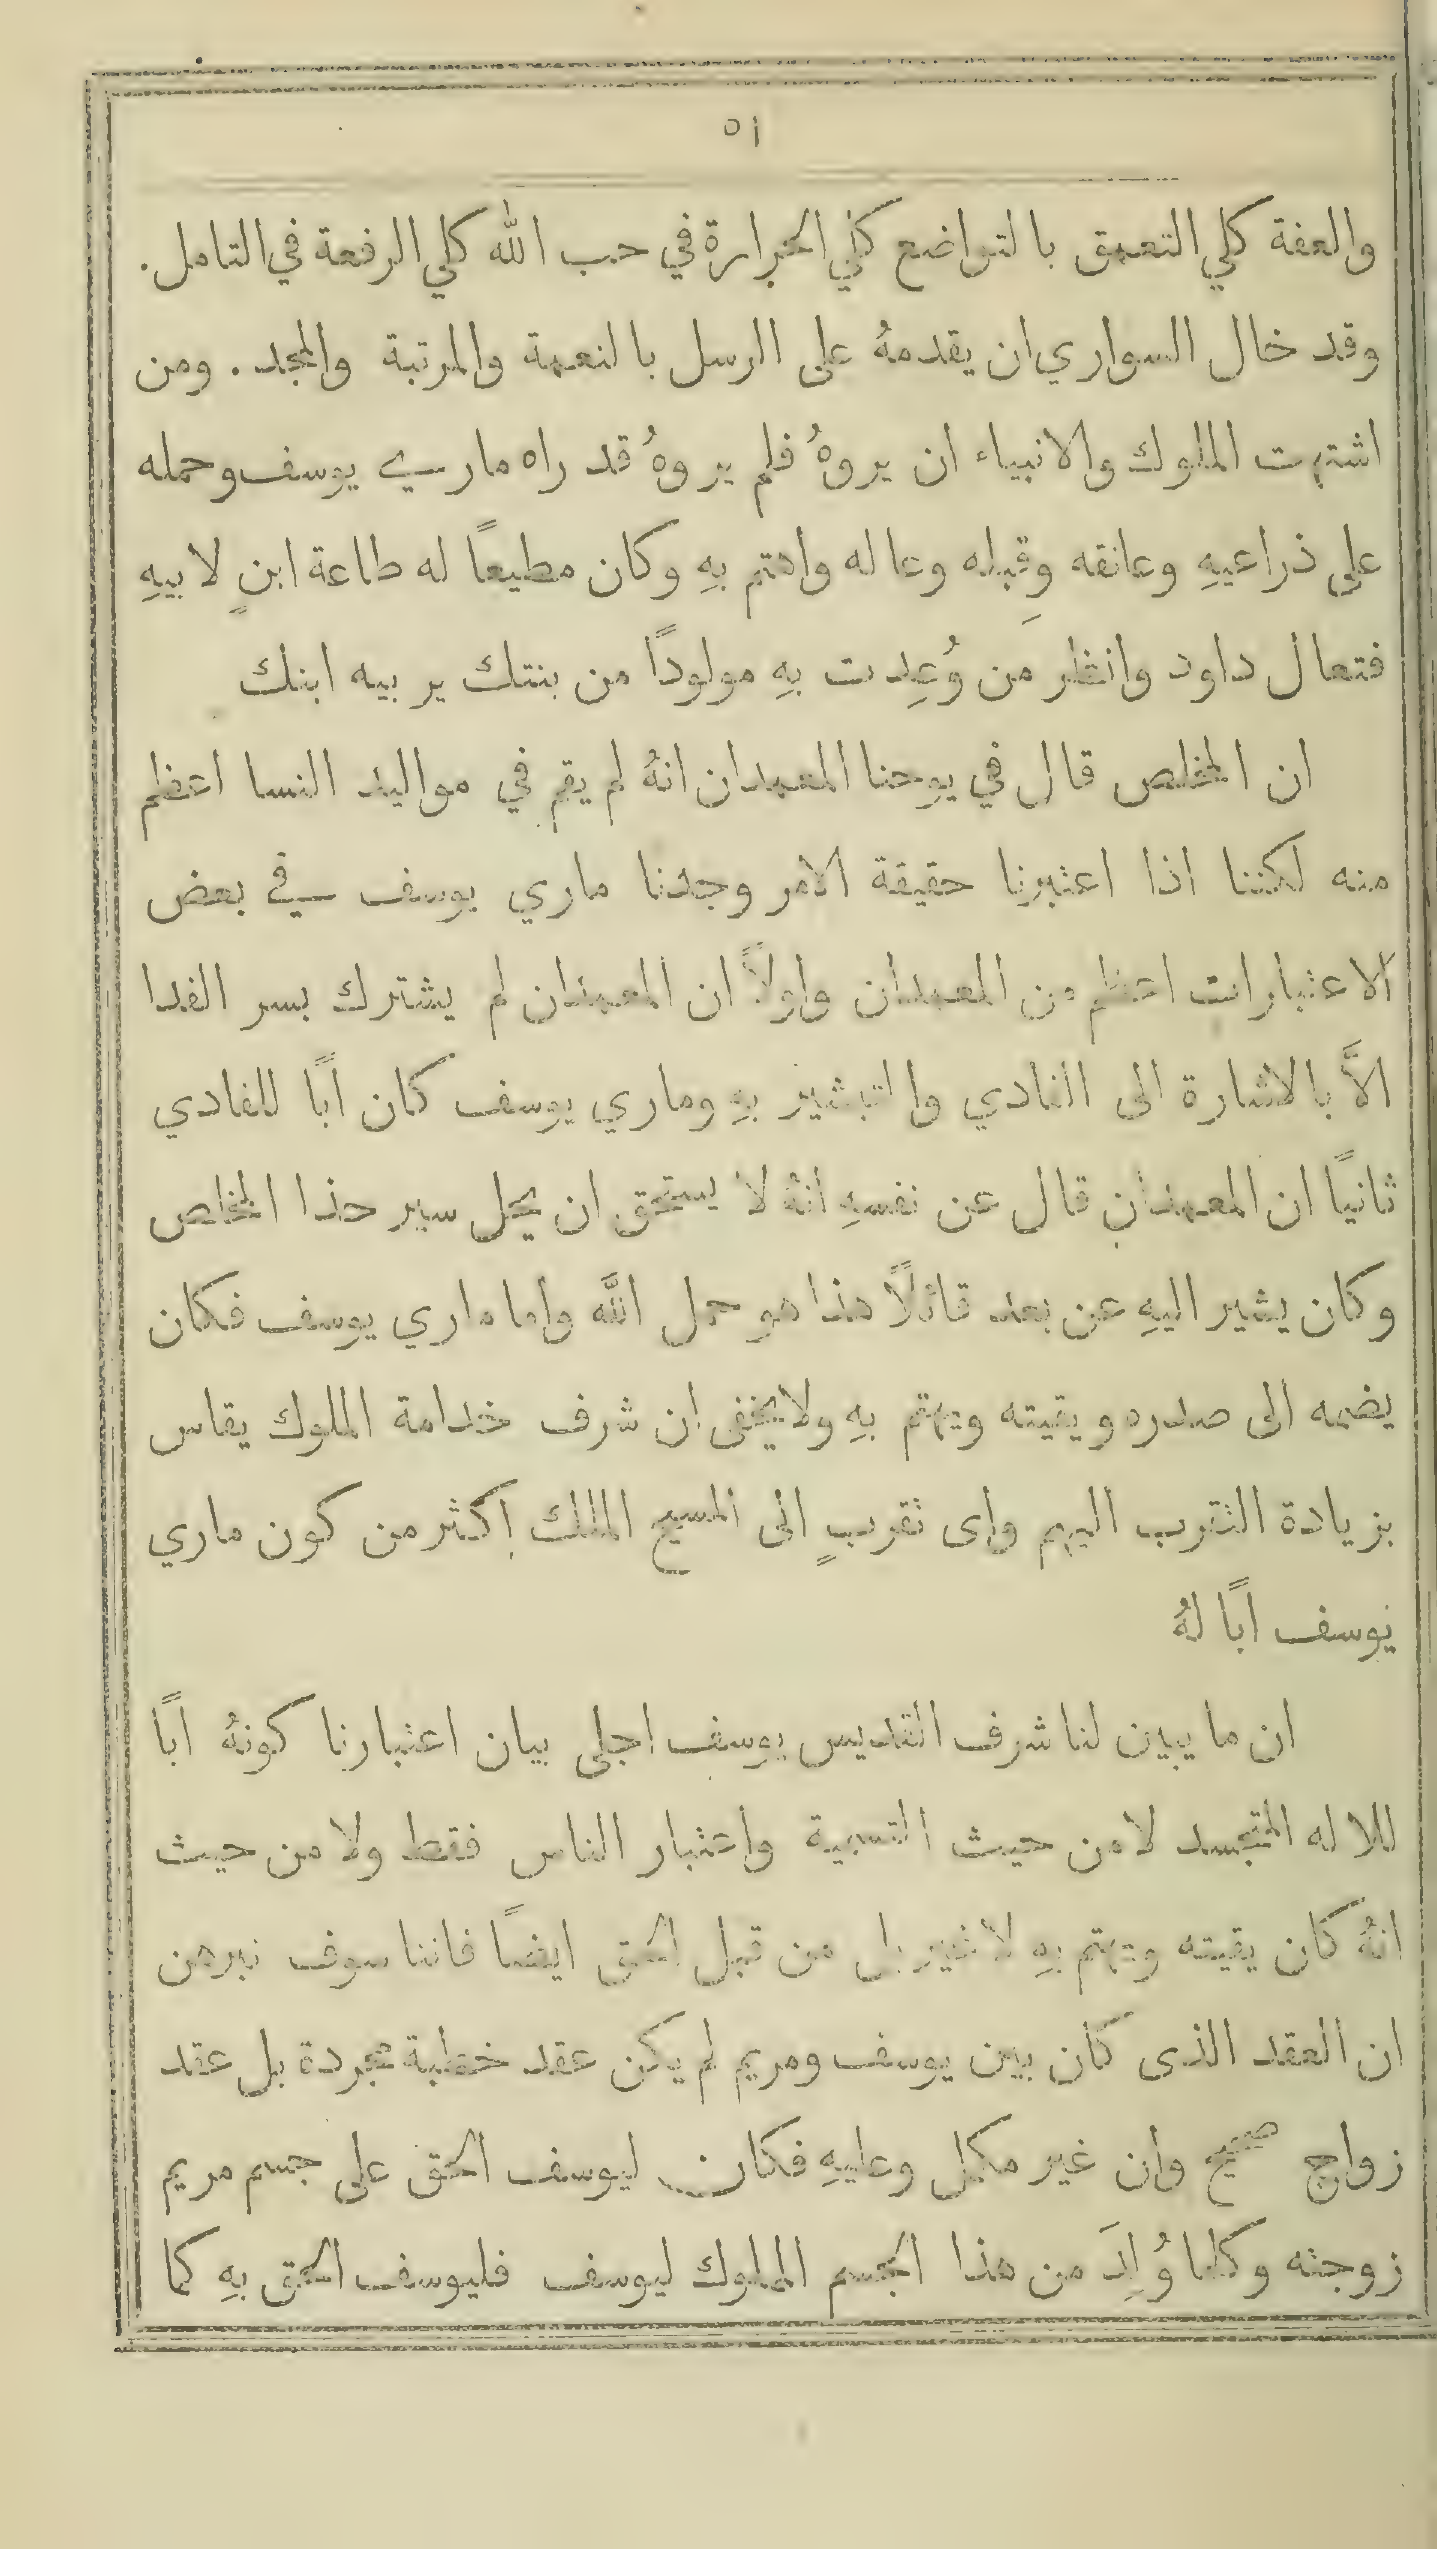 ٥١
والعفة كلي التعمق بالتواضع كلي الحرارة في حب الله كلي الرفعة في التامل.
وقد خال السواري ان يقدمهُ على الرسل بالنعمة والمرتبة والمجد. ومن
اشتهت الملوك والانبياء ان يروهُ فلم يروهُ قد راه ماري يوسف وحمله
على ذراعيهِ وعانقه وقبله وعاله واهتم بهِ وكان مطيعًا له طاعة ابنٍ لابيهِ
فتعال داود وانظر من وُعِدت بهِ مولودًا من بنتك يربيه ابنك
ان المخلص قال في يوحنا المعمدان انهُ لم يقم في مواليد النسا اعظم
منه لكننا اذا اعتبرنا حقيقة الامر وجدنا ماري يوسف في بعض
الاعتبارات اعظم من المعمدان واولاً ان المعمدان لم يشترك بسر الفدا
الاَّ بالاشارة الى الفادي والتبشير بهِ وماري يوسف كان ابًا للفادي
ثانيًا ان المعمدان قال عن نفسهِ انهُ لا يستحق ان يحل سير حذا المخلص
وكان يشير اليهِ عن بعد قائلًا هذا هو حمل الله واما ماري يوسف فكان
يضمه الى صدره ويقيته ويهتم بهِ ولا يخفى ان شرف خدامة الملوك يقاس
بزيادة التقرب اليهم واى تقربٍ الى المسيح الملك اكثر من كون ماري
يوسف ابًا لهُ
ان ما يبين لنا شرف القديس يوسف اجلى بيان اعتبارنا كونهُ ابًا
للاله المتجسد لا من حيث التسمية واعتبار الناس فقط ولا من حيث
انهُ كان يقيته ويهتم بهِ لا غير بل من قبل الحق ايضًا فاننا سوف نبرهن
ان العقد الذى كان بين يوسف ومريم لم يكن عقد خطبة مجردة بل عقد
زواج صحيح وان غير مكمل وعليهِ فكان ليوسف الحق على جسم مريم
زوجته وكلما وُلِدَ من هذا الجسم المملوك ليوسف فليوسف الحق بهِ كما